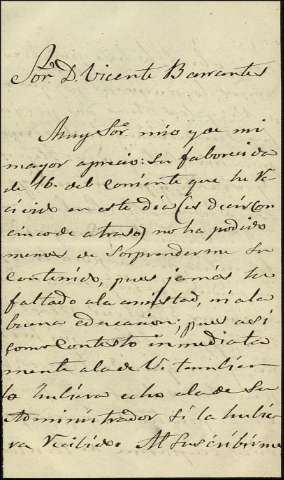 Sor. D. Vicente Barrantes
Muy Sor. mio y de mi
mayor aprecio: su faborecida
de 16. del coriente que he re-
civido en este dia (es decir con
cinco de atraso) no ha podido
menos de sorprenderme su
contenido, pues jamás he
faltado a la amistad, ni a la
buena educacion; pues asi
como contesto inmediata
mente a la de V. tambie-
n hubiera echo a la de su
Administrador si la hubie-
ra recibido. Al suscribirme